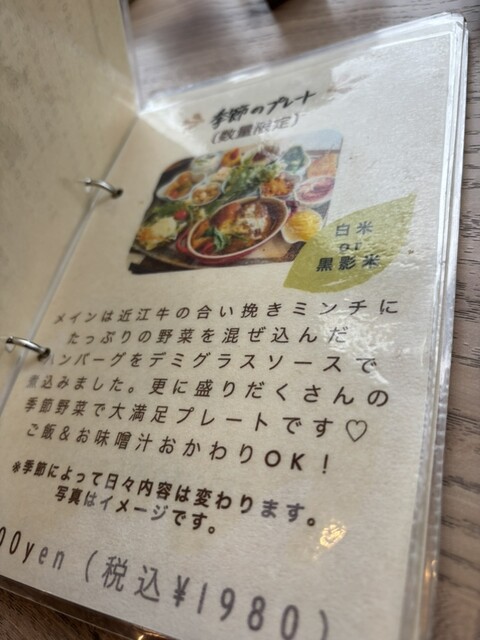 季節のプレート
(数量限定)
白米
or
黒影米
メインは近江牛の合い挽きミンチに
たっぷりの野菜を混ぜ込んだ
ハンバーグをデミグラスソースで
煮込みました。更に盛りだくさんの
季節野菜で大満足プレートです♡
ご飯&お味噌汁おかわりOK!
※季節によって日々内容は変わります。
写真はイメージです。
00yen(税込¥1980)